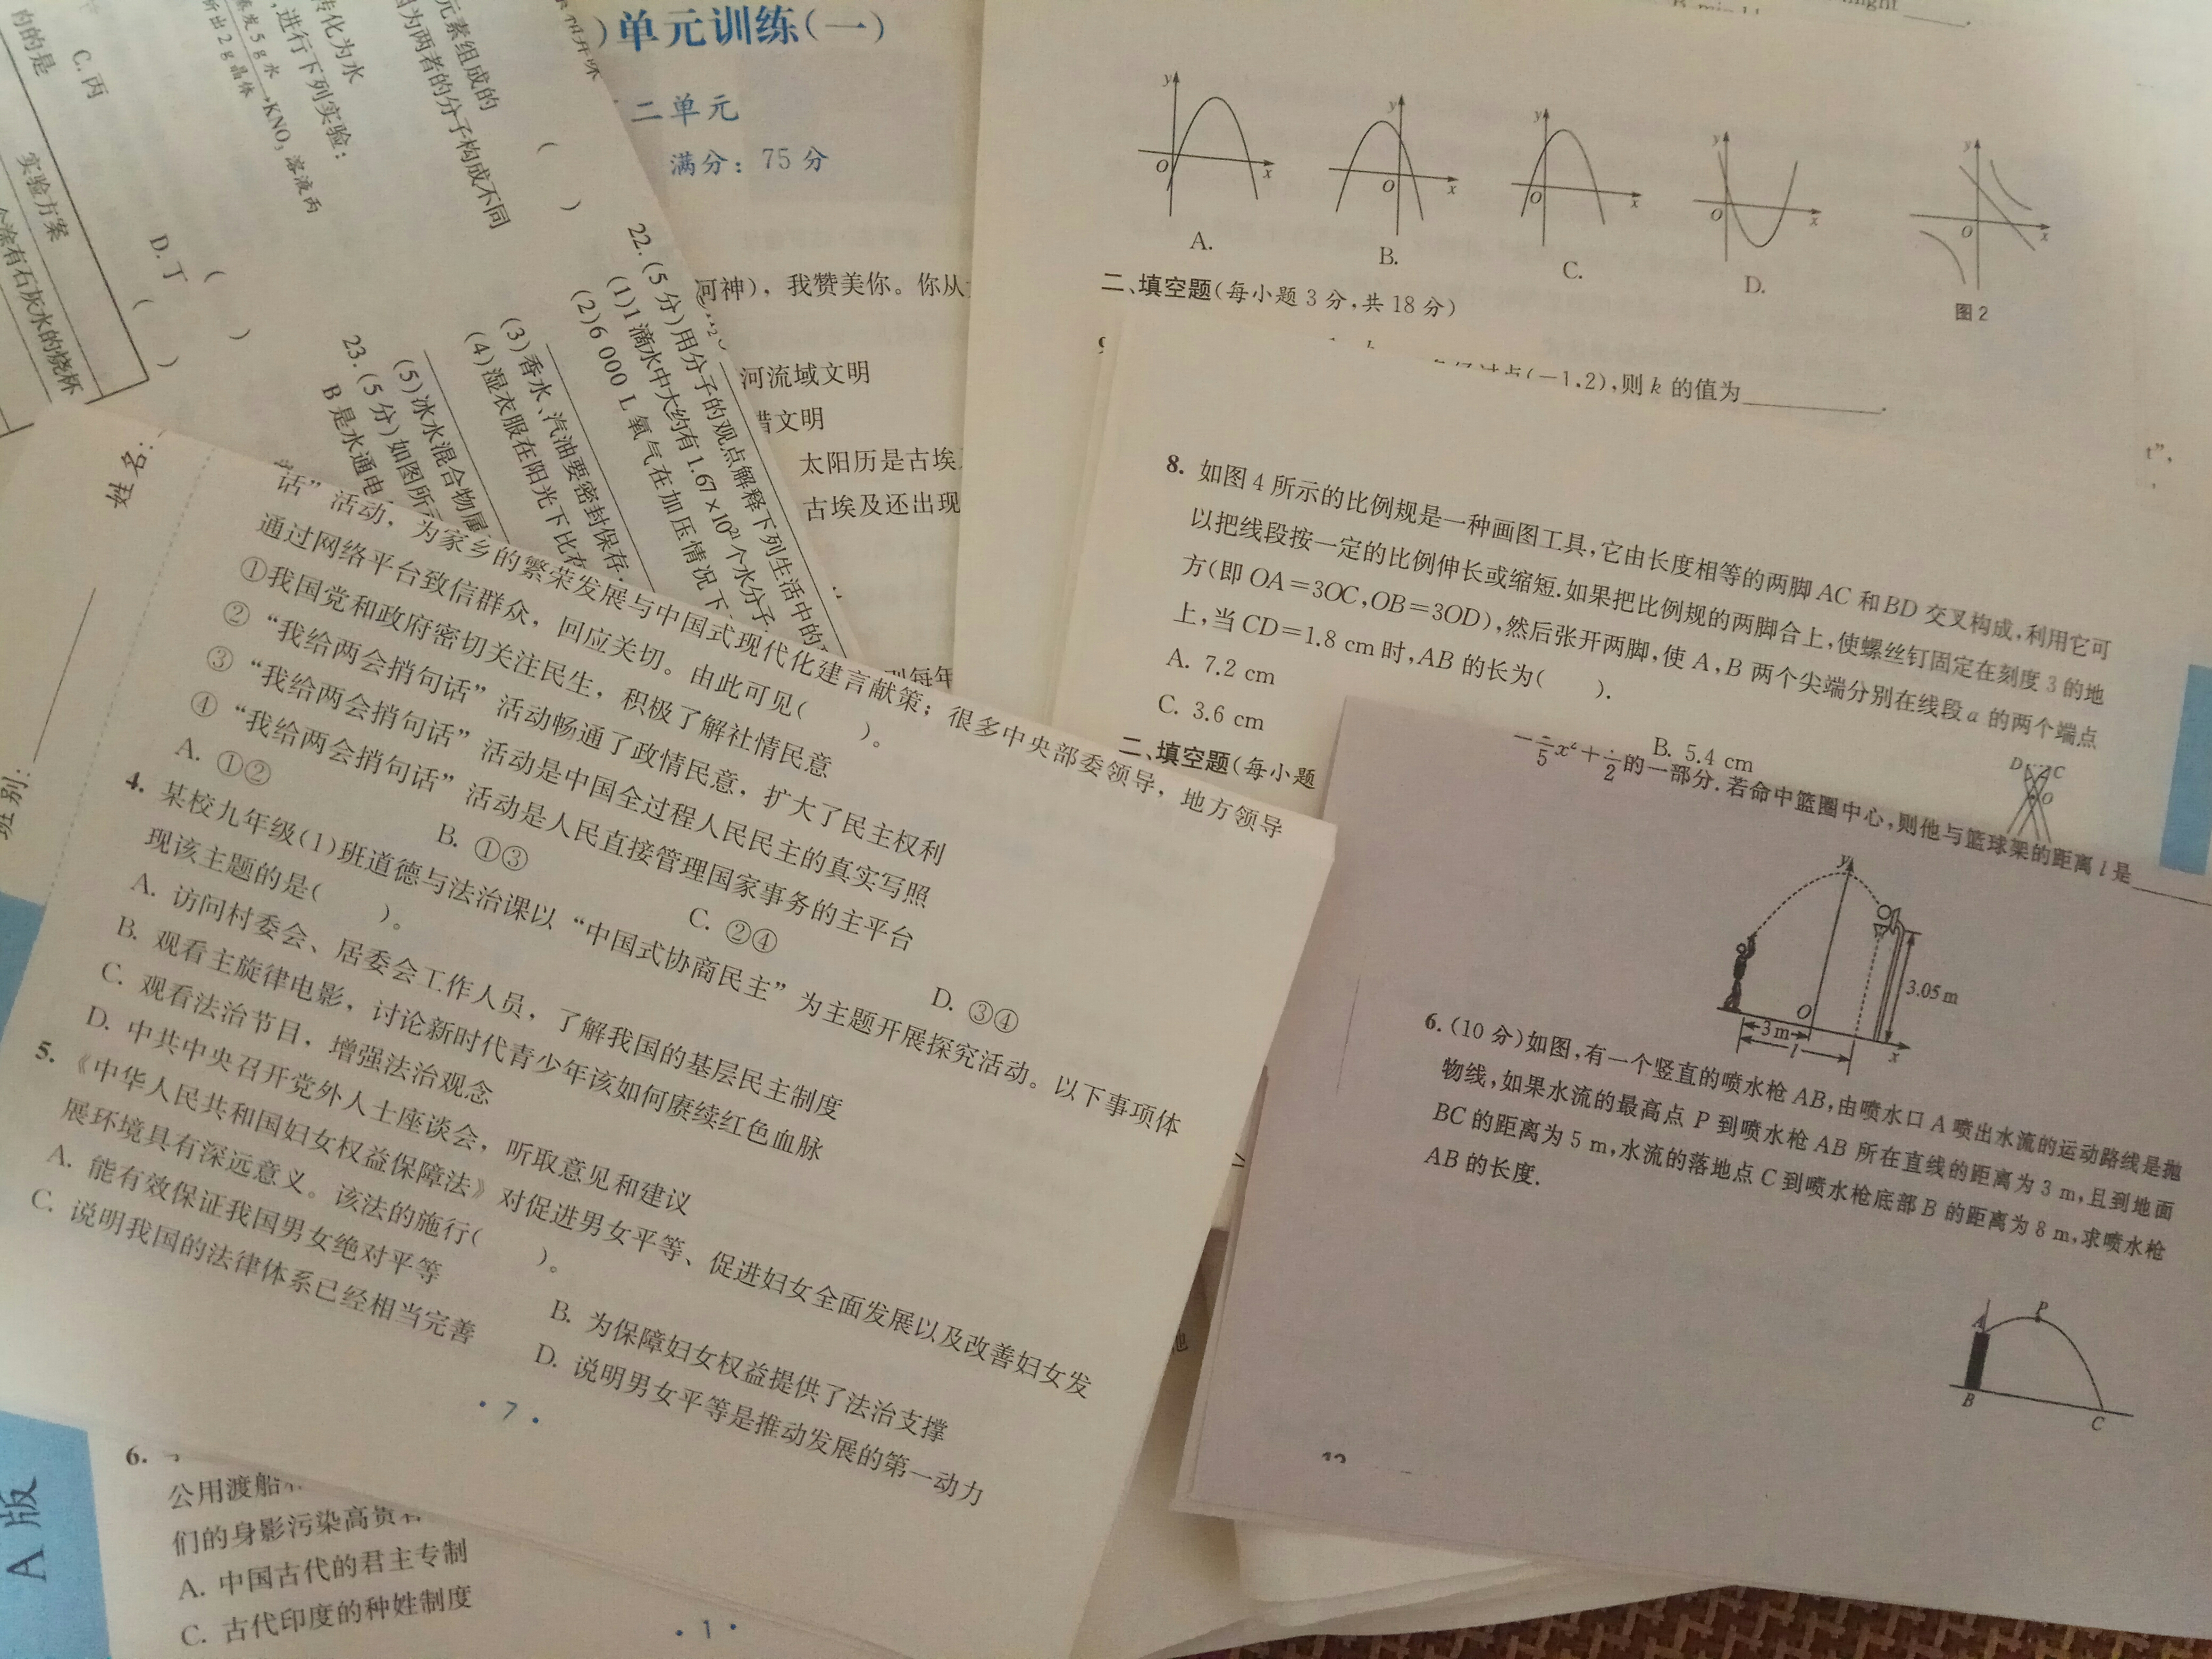 的的是
C. 丙
D. 丁
实验方案
个涂有石灰水的烧杯
转化为水
,进行下列实验:
蒸发5 g 水
析出2 g 晶体
KNO₃ 溶液丙
元素组成的
因为两者的分子构成不同
22. (5 分)用分子的观点解释下列生活中的
(1)1 滴水中大约有 1.67×10²¹ 个水分子
(2)6 000 L 氧气在加压情况下
(3)香水、汽油要密封保存
(4)湿衣服在阳光下比在
(5)冰水混合物属
23. (5 分)如图所示
B 是水通电
)单元训练(一)
二单元
满分: 75 分
河神),我赞美你。你从
河流域文明
腊文明
太阳历是古埃
古埃及还出现
y
O
x
A.
y
O
x
B.
y
O
x
C.
y
O
x
D.
y
O
x
图 2
二、填空题(每小题 3 分,共 18 分)
点(-1,2),则 k 的值为
8. 如图 4 所示的比例规是一种画图工具,它由长度相等的两脚 AC 和 BD 交叉构成,利用它可
以把线段按一定的比例伸长或缩短.如果把比例规的两脚合上,使螺丝钉固定在刻度 3 的地
方(即 OA=3OC,OB=3OD),然后张开两脚,使 A,B 两个尖端分别在线段 a 的两个端点
上,当 CD=1.8 cm 时,AB 的长为( ).
A. 7.2 cm
B. 5.4 cm
C. 3.6 cm
D
C
O
二、填空题(每小题
的一部分.若命中篮圈中心,则他与篮球架的距离 l 是
y
3.05 m
O
3 m
l
x
6. (10 分)如图,有一个竖直的喷水枪 AB,由喷水口 A 喷出水流的运动路线是抛
物线,如果水流的最高点 P 到喷水枪 AB 所在直线的距离为 3 m,且到地面
BC 的距离为 5 m,水流的落地点 C 到喷水枪底部 B 的距离为 8 m,求喷水枪
AB 的长度.
A
P
B
C
姓名:
班别:
话”活动,为家乡的繁荣发展与中国式现代化建言献策;很多中央部委领导,地方领导
通过网络平台致信群众,回应关切。由此可见( )。
①我国党和政府密切关注民生,积极了解社情民意
②“我给两会捎句话”活动畅通了政情民意,扩大了民主权利
③“我给两会捎句话”活动是中国全过程人民民主的真实写照
④“我给两会捎句话”活动是人民直接管理国家事务的主平台
A. ①②
B. ①③
C. ②④
D. ③④
4. 某校九年级(1)班道德与法治课以“中国式协商民主”为主题开展探究活动。以下事项体
现该主题的是( )。
A. 访问村委会、居委会工作人员,了解我国的基层民主制度
B. 观看主旋律电影,讨论新时代青少年该如何赓续红色血脉
C. 观看法治节目,增强法治观念
D. 中共中央召开党外人士座谈会,听取意见和建议
5. 《中华人民共和国妇女权益保障法》对促进男女平等、促进妇女全面发展以及改善妇女发
展环境具有深远意义。该法的施行( )。
A. 能有效保证我国男女绝对平等
B. 为保障妇女权益提供了法治支撑
C. 说明我国的法律体系已经相当完善
D. 说明男女平等是推动发展的第一动力
· 7 ·
6.
公用渡船
们的身影污染高贵
A. 中国古代的君主专制
C. 古代印度的种姓制度
· 1 ·
A 版